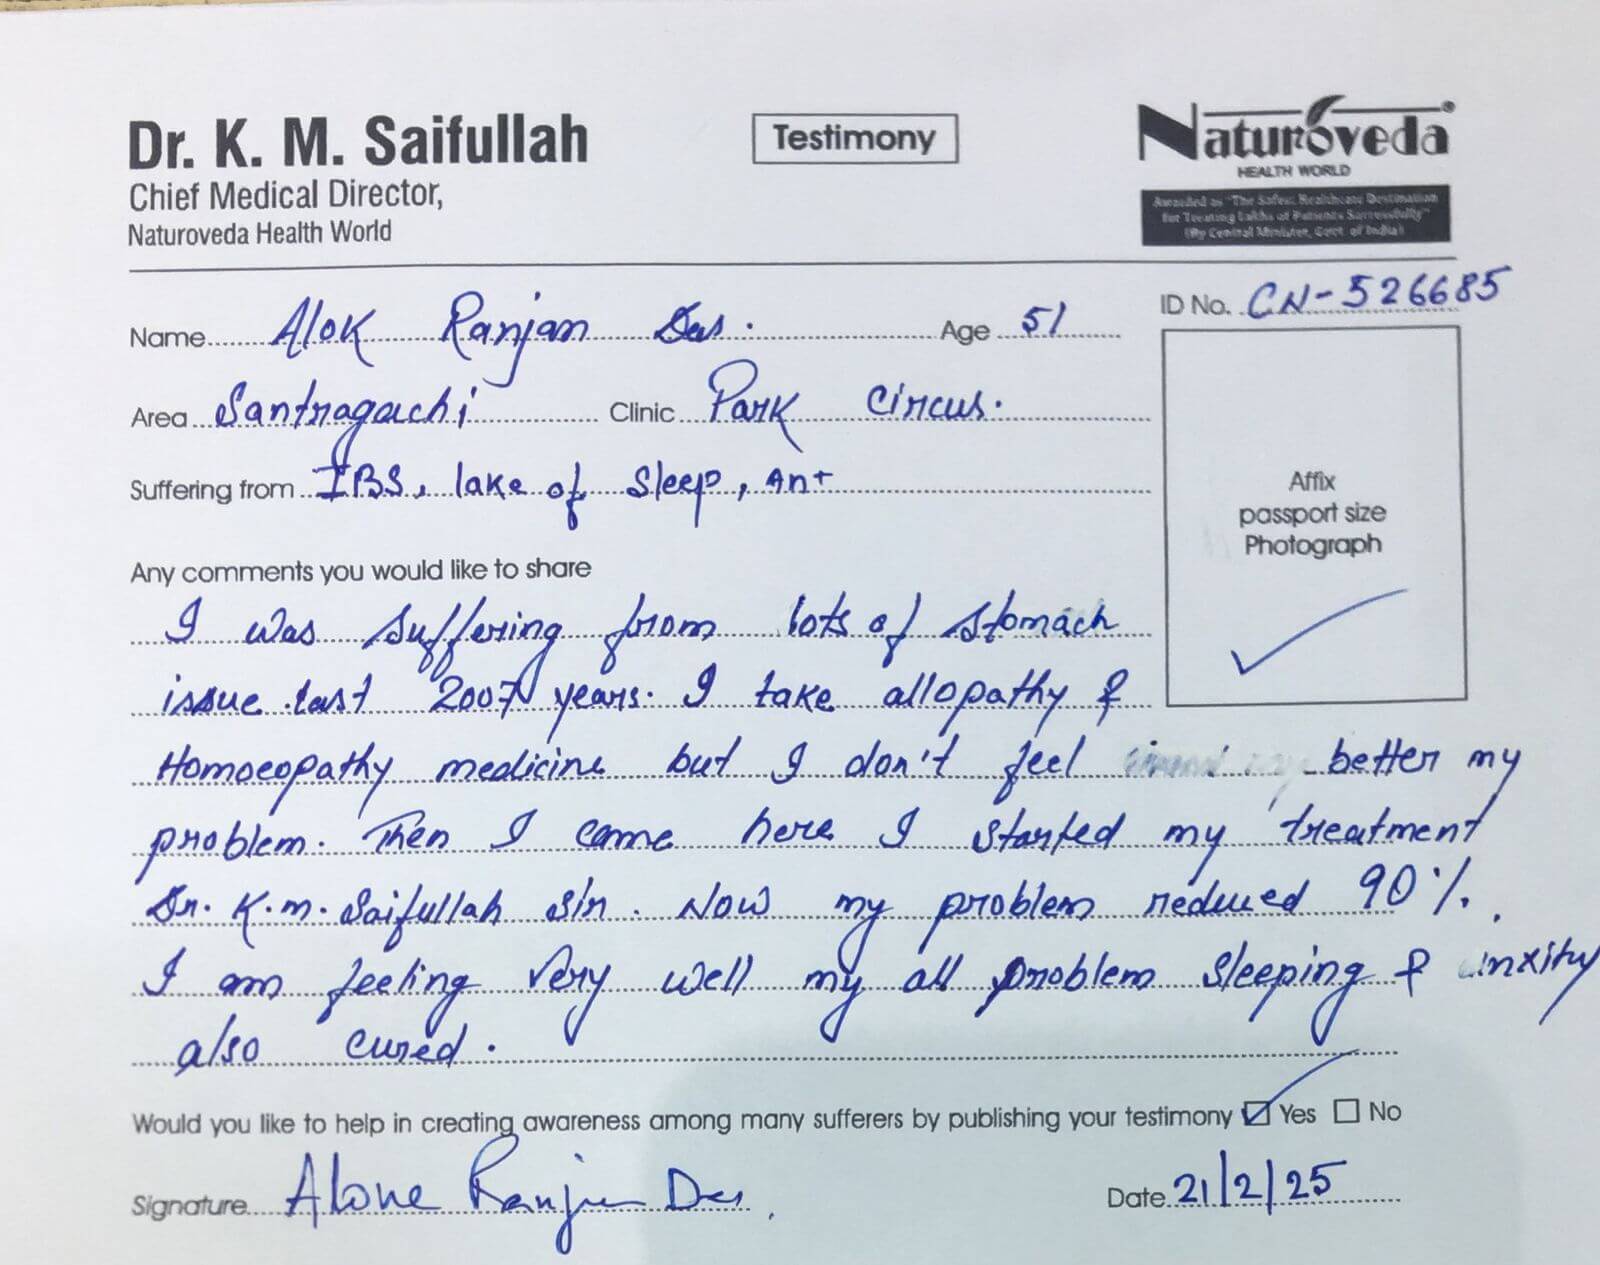 Dr. K. M. Saifullah
Chief Medical Director,
Naturoveda Health World
Testimony
Naturoveda®
HEALTH WORLD
Awarded as "The Safest Healthcare Destination
for Treating Lakhs of Patients Successfully"
(By Central Minister, Govt. of India)
ID No. CN-526685
Name Alok Ranjan Das. Age 51
Area Santragachi Clinic Park Circus.
Suffering from IBS, lake of sleep, Ant
Affix
passport size
Photograph
Any comments you would like to share
I was suffering from lots of stomach
issue last 2007 years. I take allopathy &
Homoeopathy medicine but I don't feel better my
problem. Then I came here I started my treatment
Dr. K.M. Saifullah sir. Now my problem reduced 90%.
I am feeling very well my all problem sleeping & anxity
also cured.
Would you like to help in creating awareness among many sufferers by publishing your testimony Yes No
Signature Alok Ranjan Das Date 21/2/25